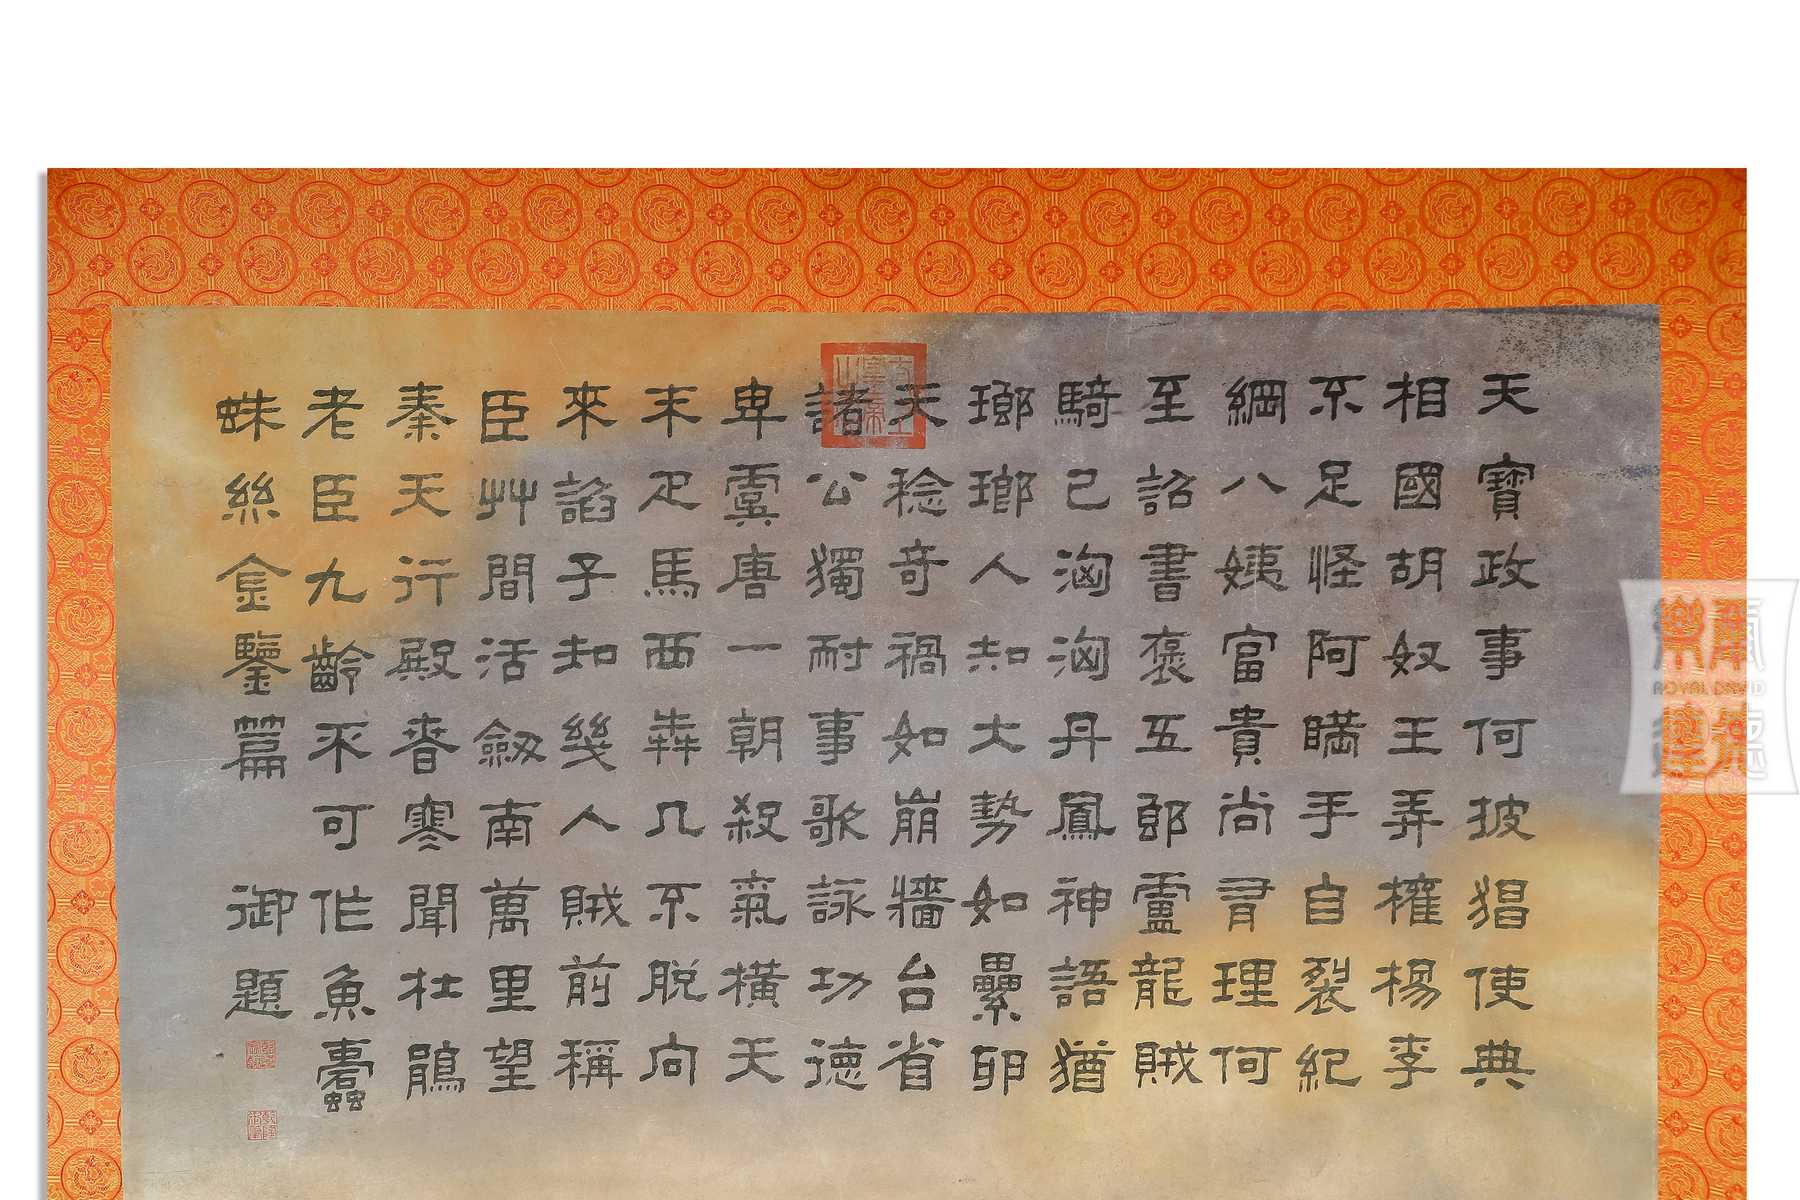 天寶政事何披猖使典
相國胡奴王弄權楊李
不足怪阿瞞手自裂紀
綱八姨富貴尚有理何
至詔書褒五郎盧龍賊
騎已洶洶丹鳳神語猶
琅琅人知大勢如纍卵
天稔奇禍如崩牆台省
諸公獨耐事歌詠功德
卑虞唐一朝殺氣橫天
末疋馬西奔几不脫向
來諂子知幾人賊前稱
臣艸間活劔南萬里望
秦天行殿春寒聞杜鵑
老臣九齡不可作魚蠹
蛛絲金鑒篇
御題
爾德樂達
ROYAL DAVID